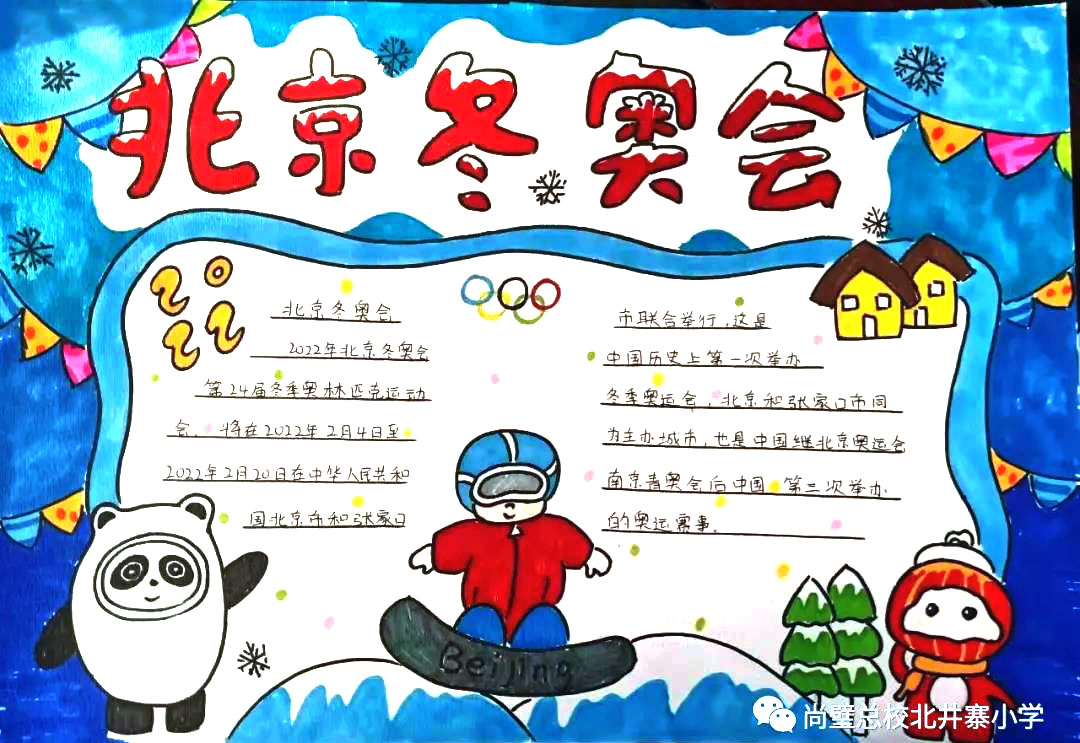 北京冬奥会
2022
北京冬奥会
2022年北京冬奥会
第24届冬季奥林匹克运动
会，将在2022年2月4日至
2022年2月20日在中华人民共和
国北京市和张家口
市联合举行,这是
中国历史上第一次举办
冬季奥运会，北京和张家口市同
为主办城市，也是中国继北京奥运会
南京青奥会后中国第三次举办
的奥运赛事。
Beijing
尚璧总校北井寨小学